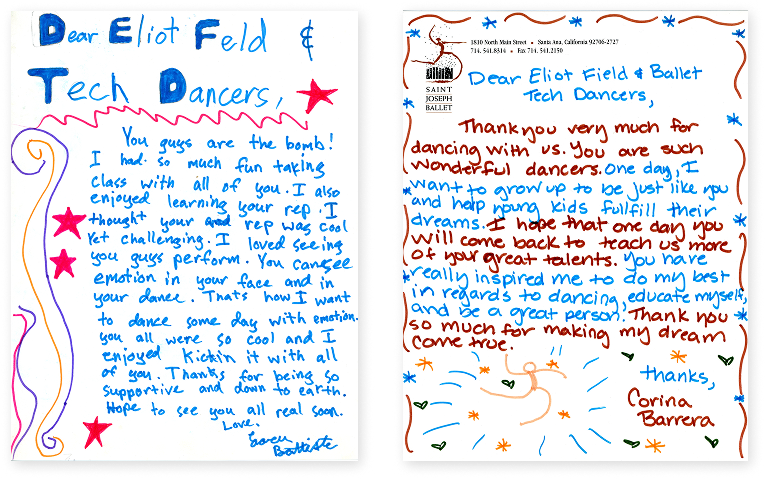 Dear Eliot Feld &
Tech Dancers,
You guys are the bomb!
I had so much fun taking
class with all of you. I also
enjoyed learning your rep. I
thought your rep was cool
yet challenging. I loved seeing
you guys perform. You can see
emotion in your face and in
your dance. Thats how I want
to dance some day with emotion.
you all were so cool and I
enjoyed Kickin it with all
of you. Thanks for being so
supportive and down to earth.
Hope to see you all real soon.
Love,
Battiste
1810 North Main Street • Santa Ana, California 92706-2727
714. 541.8314 • Fax 714. 541.2150
SAINT
JOSEPH
BALLET
Dear Eliot Field & Ballet
Tech Dancers,
Thank you very much for
dancing with us. You are such
wonderful dancers. One day, I
want to grow up to be just like you
and help young kids fullfill their
dreams. I hope that one day you
will come back to teach us more
of your great talents. You have
really inspired me to do my best
in regards to dancing, educate myself,
and be a great person. Thank you
so much for making my dream
come true.
thanks,
Corina
Barrera